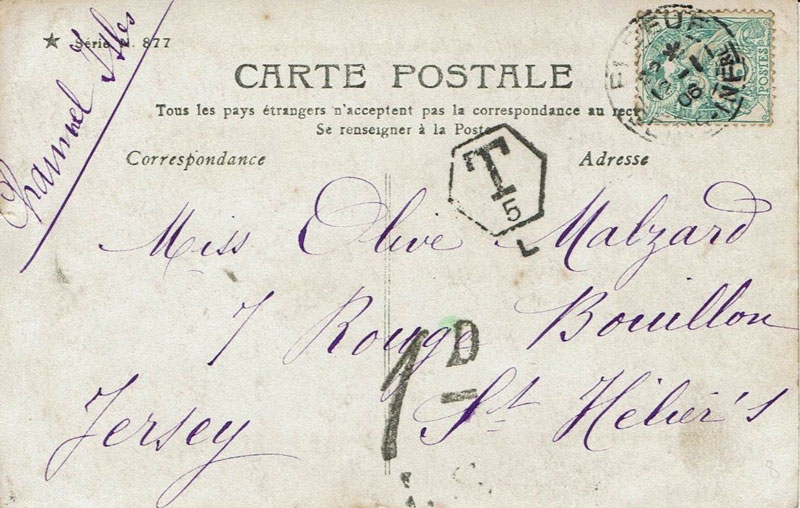 Channel Isles
★ Série N. 877
CARTE POSTALE
Tous les pays étrangers n'acceptent pas la correspondance au rect
Se renseigner à la Poste
Correspondance
Adresse
ELBEUF
06
INFRE
POSTES
T
5
L
Miss Olive Malzard
7 Rouge Bouillon
Jersey St Hélier's
1D
8